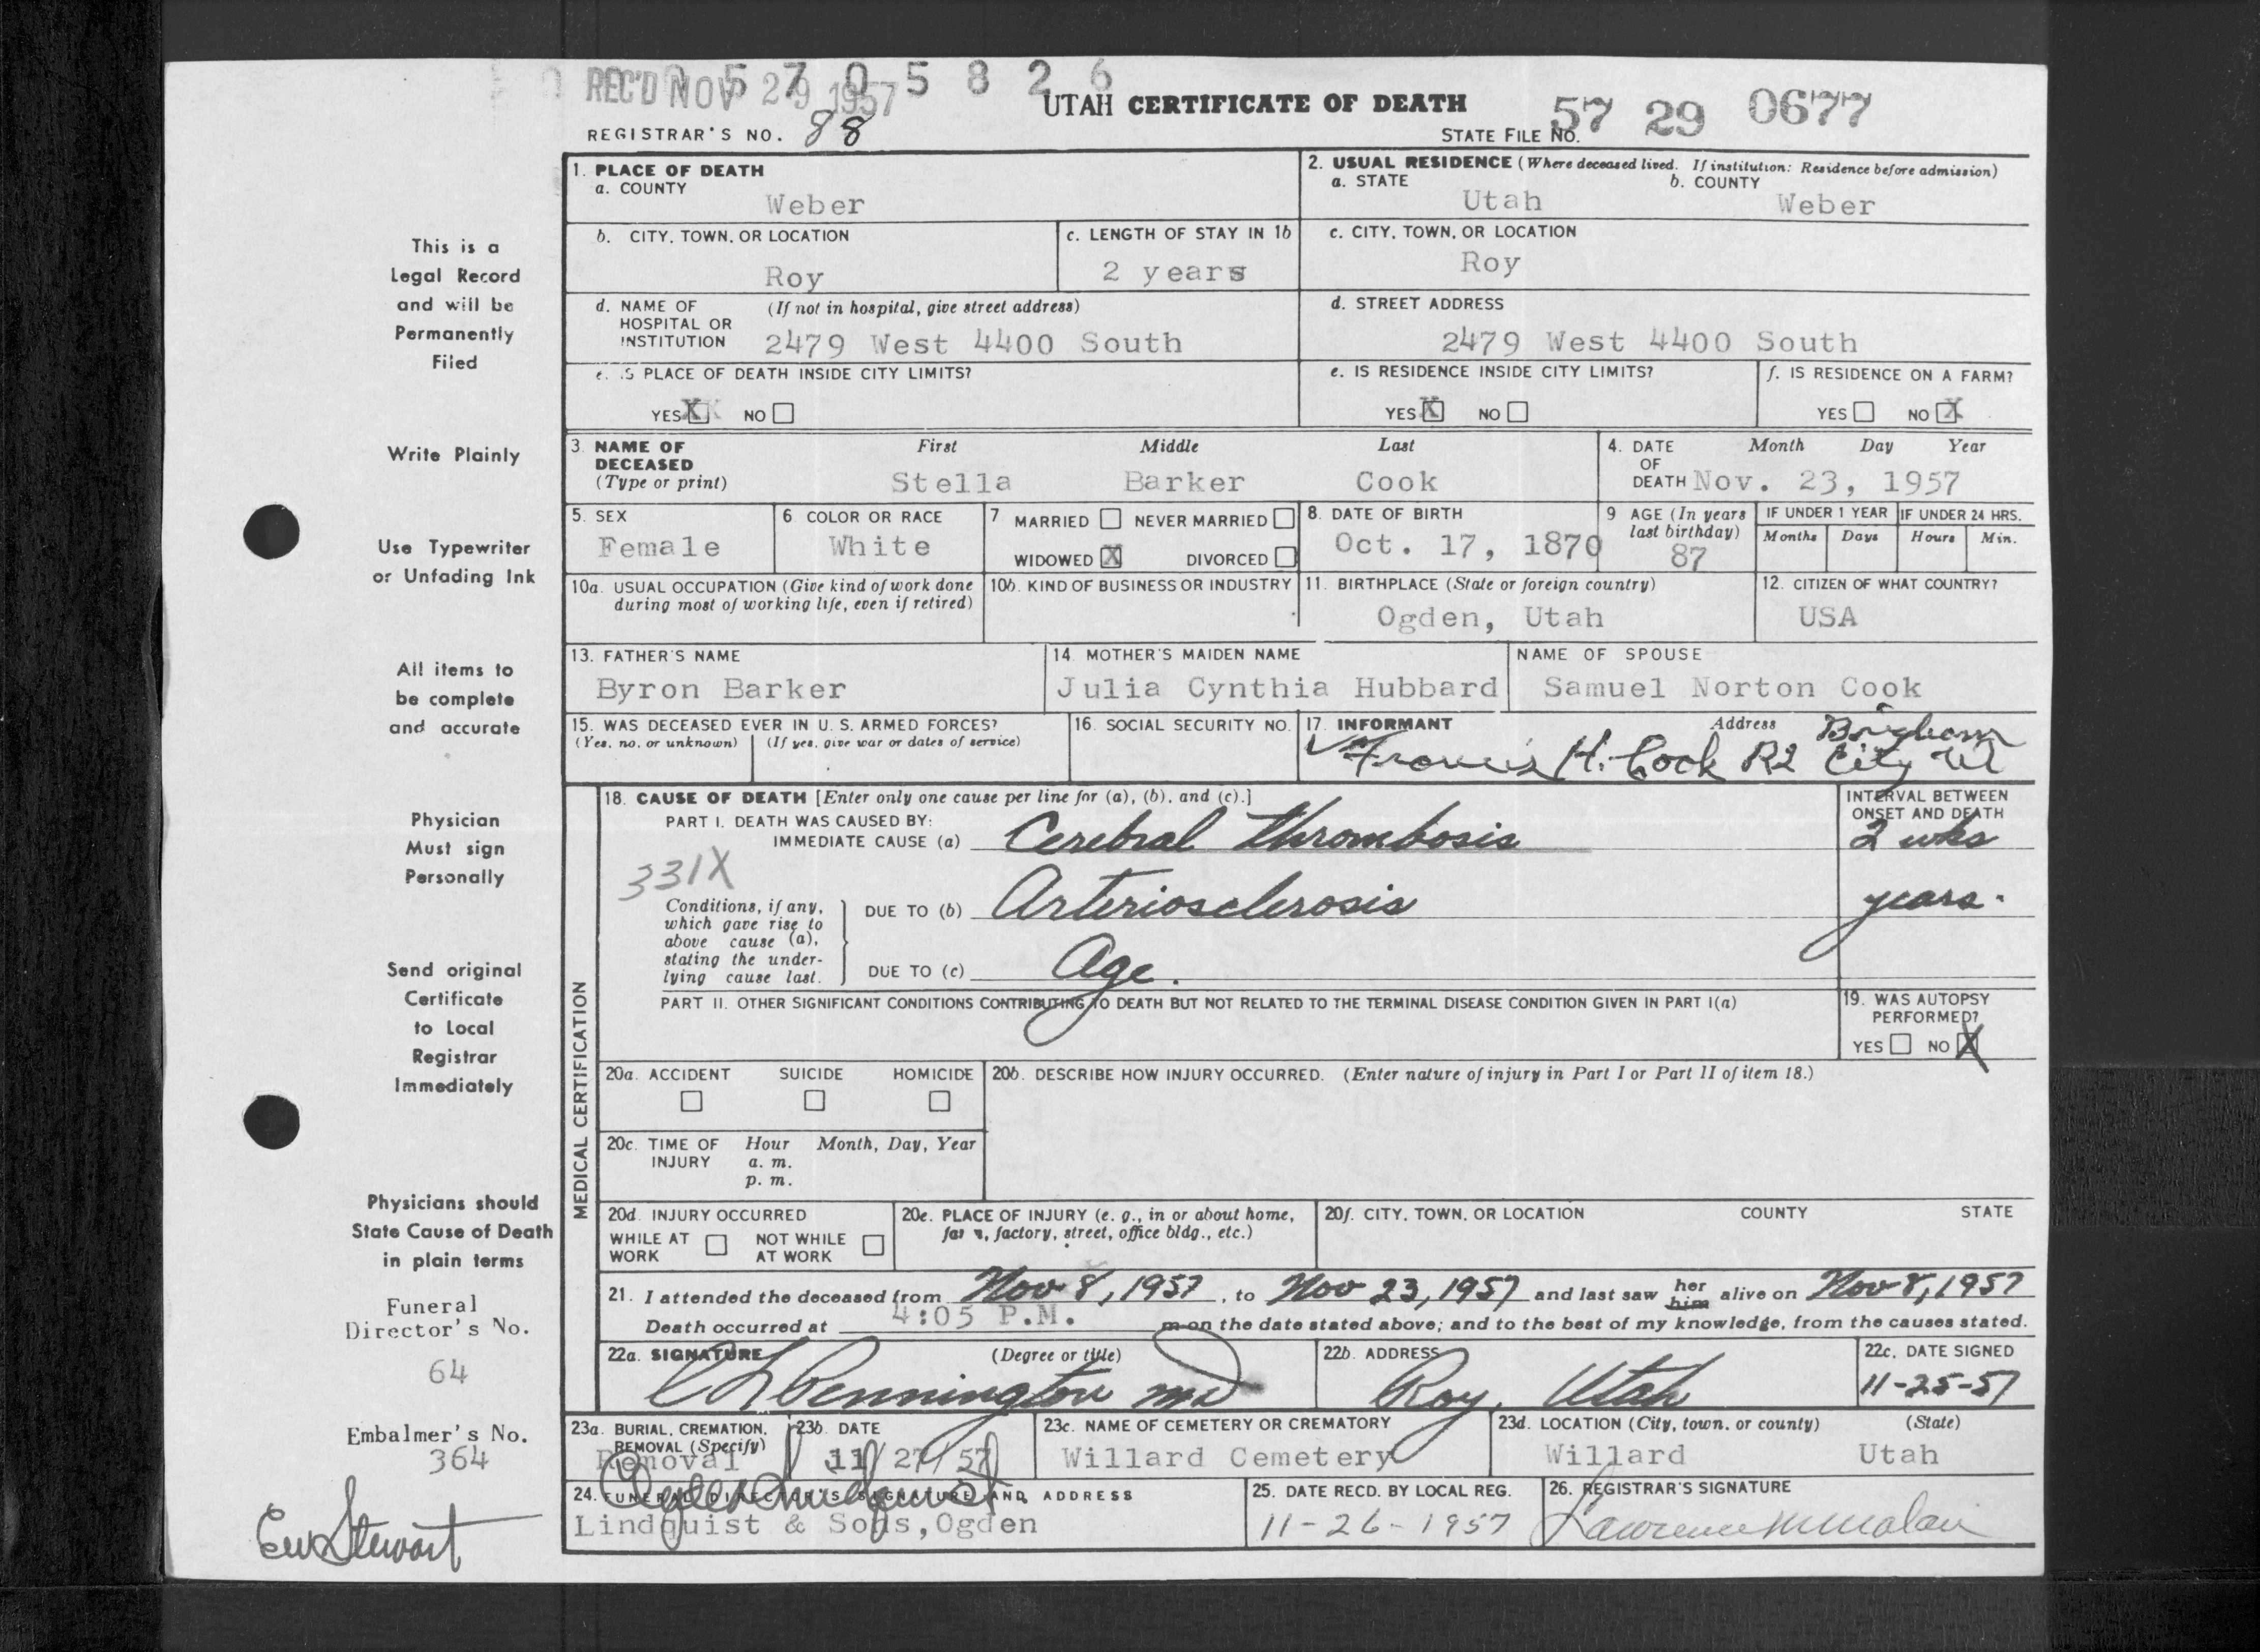 REC'D NOV 29 1957
5 7 0 5 8 2 6
UTAH CERTIFICATE OF DEATH
REGISTRAR'S NO. 88
STATE FILE NO. 57 29 0677
This is a
Legal Record
and will be
Permanently
Filed
Write Plainly
Use Typewriter
or Unfading Ink
All items to
be complete
and accurate
Physician
Must sign
Personally
Send original
Certificate
to Local
Registrar
Immediately
Physicians should
State Cause of Death
in plain terms
Funeral
Director's No.
64
Embalmer's No.
364
Stewart
1. PLACE OF DEATH
a. COUNTY
Weber
2. USUAL RESIDENCE (Where deceased lived. If institution: Residence before admission)
a. STATE b. COUNTY
Utah Weber
b. CITY, TOWN, OR LOCATION
Roy
c. LENGTH OF STAY IN 1b
2 years
c. CITY, TOWN, OR LOCATION
Roy
d. NAME OF (If not in hospital, give street address)
HOSPITAL OR
INSTITUTION 2479 West 4400 South
d. STREET ADDRESS
2479 West 4400 South
e. IS PLACE OF DEATH INSIDE CITY LIMITS?
YES X NO
e. IS RESIDENCE INSIDE CITY LIMITS?
YES X NO
f. IS RESIDENCE ON A FARM?
YES NO X
3. NAME OF First Middle Last
DECEASED
(Type or print) Stella Barker Cook
4. DATE Month Day Year
OF
DEATH Nov. 23, 1957
5. SEX
Female
6 COLOR OR RACE
White
7 MARRIED NEVER MARRIED
WIDOWED X DIVORCED
8. DATE OF BIRTH
Oct. 17, 1870
9 AGE (In years
last birthday)
87
IF UNDER 1 YEAR IF UNDER 24 HRS.
Months Days Hours Min.
10a. USUAL OCCUPATION (Give kind of work done
during most of working life, even if retired)
10b. KIND OF BUSINESS OR INDUSTRY
11. BIRTHPLACE (State or foreign country)
Ogden, Utah
12. CITIZEN OF WHAT COUNTRY?
USA
13. FATHER'S NAME
Byron Barker
14. MOTHER'S MAIDEN NAME
Julia Cynthia Hubbard
NAME OF SPOUSE
Samuel Norton Cook
15. WAS DECEASED EVER IN U. S. ARMED FORCES?
(Yes, no, or unknown) (If yes, give war or dates of service)
16. SOCIAL SECURITY NO.
17. INFORMANT Address Brigham
Francis H. Cook R2 City Ut
MEDICAL CERTIFICATION
18. CAUSE OF DEATH [Enter only one cause per line for (a), (b), and (c).]
INTERVAL BETWEEN
ONSET AND DEATH
PART I. DEATH WAS CAUSED BY:
IMMEDIATE CAUSE (a) Cerebral thrombosis 2 wks
331X
Conditions, if any,
which gave rise to
above cause (a),
stating the under-
lying cause last.
DUE TO (b) Arteriosclerosis years.
DUE TO (c) Age.
PART II. OTHER SIGNIFICANT CONDITIONS CONTRIBUTING TO DEATH BUT NOT RELATED TO THE TERMINAL DISEASE CONDITION GIVEN IN PART I(a)
19. WAS AUTOPSY
PERFORMED?
YES NO X
20a. ACCIDENT SUICIDE HOMICIDE
20b. DESCRIBE HOW INJURY OCCURRED. (Enter nature of injury in Part I or Part II of item 18.)
20c. TIME OF Hour Month, Day, Year
INJURY a. m.
p. m.
20d. INJURY OCCURRED
WHILE AT NOT WHILE
WORK AT WORK
20e. PLACE OF INJURY (e. g., in or about home,
farm, factory, street, office bldg., etc.)
20f. CITY, TOWN, OR LOCATION COUNTY STATE
21. I attended the deceased from Nov 8, 1957, to Nov 23, 1957 and last saw her him alive on Nov 8, 1957
Death occurred at 4:05 P.M. m on the date stated above; and to the best of my knowledge, from the causes stated.
22a. SIGNATURE (Degree or title)
Pennington MD
22b. ADDRESS
Roy, Utah
22c. DATE SIGNED
11-25-57
23a. BURIAL, CREMATION,
REMOVAL (Specify)
Removal
23b. DATE
11/27/57
23c. NAME OF CEMETERY OR CREMATORY
Willard Cemetery
23d. LOCATION (City, town, or county) (State)
Willard Utah
24. FUNERAL DIRECTOR'S SIGNATURE AND ADDRESS
Lindquist & Sons, Ogden
25. DATE RECD. BY LOCAL REG.
11-26-1957
26. REGISTRAR'S SIGNATURE
Lawrence M Malan